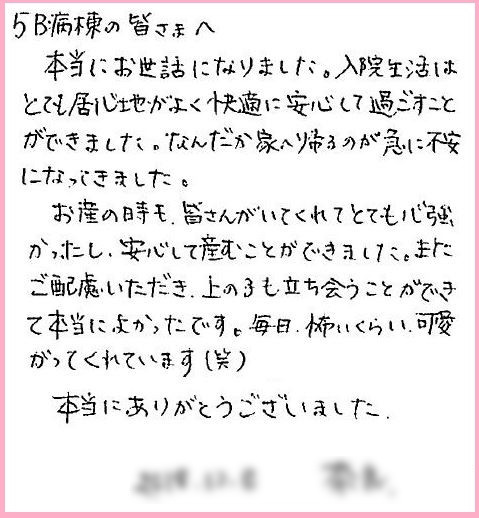 5B病棟の皆さまへ
本当にお世話になりました。入院生活は
とても居心地がよく快適に安心して過ごすこと
ができました。なんだか家へ帰るのが急に不安
になってきました。
お産の時も、皆さんがいてくれてとても心強
かったし、安心して産むことができました。また
ご配慮いただき、上の子も立ち会うことができ
て本当によかったです。毎日、怖いくらい、可愛
がってくれています(笑)
本当にありがとうございました.